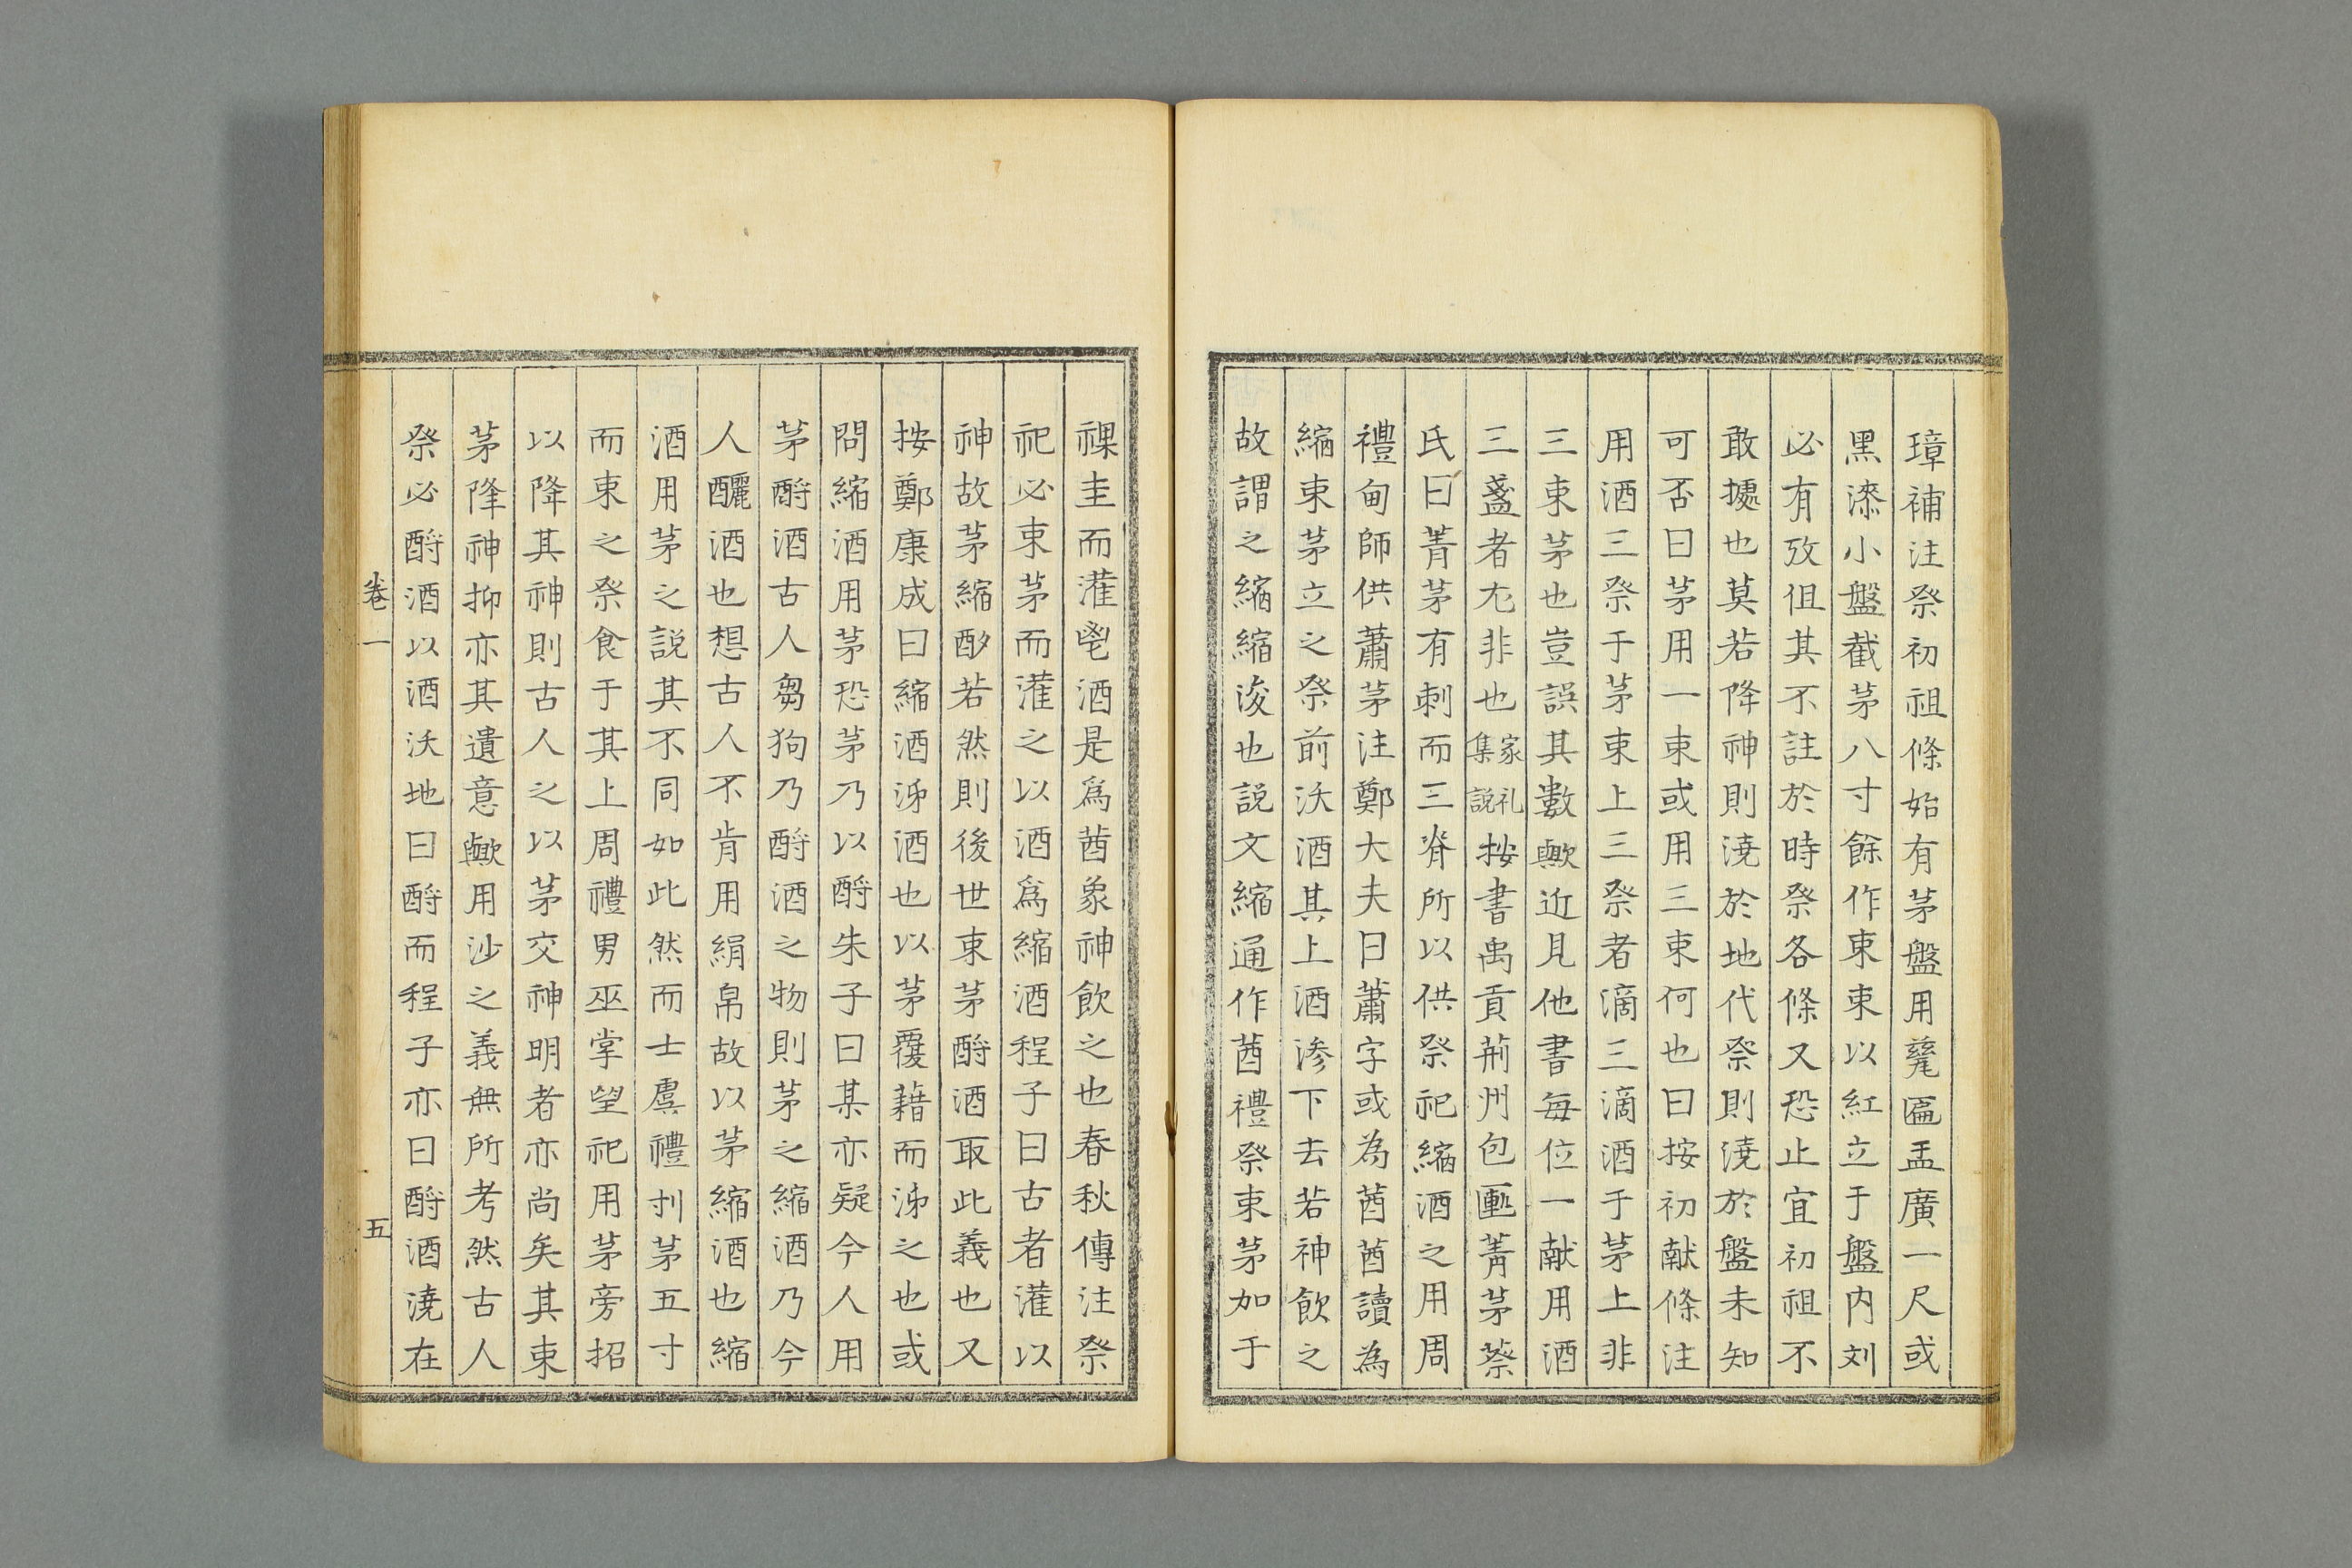 璋補注祭初祖條始有茅盤用甆匾盂廣一尺或
黑漆小盤截茅八寸餘作束束以紅立于盤内刘
必有攷但其不註於時祭各條又恐止宜初祖不
敢㨿也莫若降神則澆於地代祭則澆於盤未知
可否曰茅用一束或用三束何也曰按初献條注
用酒三祭于茅束上三祭者滴三滴酒于茅上非
三束茅也豈誤其數歟近見他書每位一献用酒
三盞者尤非也家礼集説按書禹貢荊州包匭菁茅蔡
氏曰菁茅有刺而三脊所以供祭祀縮酒之用周
禮甸師供蕭茅注鄭大夫曰蕭字或為莤莤讀為
縮束茅立之祭前沃酒其上酒滲下去若神飲之
故謂之縮縮浚也説文縮通作莤禮祭束茅加于
祼圭而灌鬯酒是爲莤象神飲之也春秋傳注祭
祀必束茅而灌之以酒爲縮酒程子曰古者灌以
神故茅縮酌若然則後世束茅酹酒取此義也又
按鄭康成曰縮酒泲酒也以茅覆藉而泲之也或
問縮酒用茅恐茅乃以酹朱子曰某亦疑今人用
茅酹酒古人芻狗乃酹酒之物則茅之縮酒乃今
人釃酒也想古人不肯用絹帛故以茅縮酒也縮
酒用茅之説其不同如此然而士虞禮刌茅五寸
而束之祭食于其上周禮男巫掌望祀用茅旁招
以降其神則古人之以茅交神明者亦尚矣其束
茅降神抑亦其遺意歟用沙之義無所考然古人
祭必酹酒以酒沃地曰酹而程子亦曰酹酒澆在
卷一
五